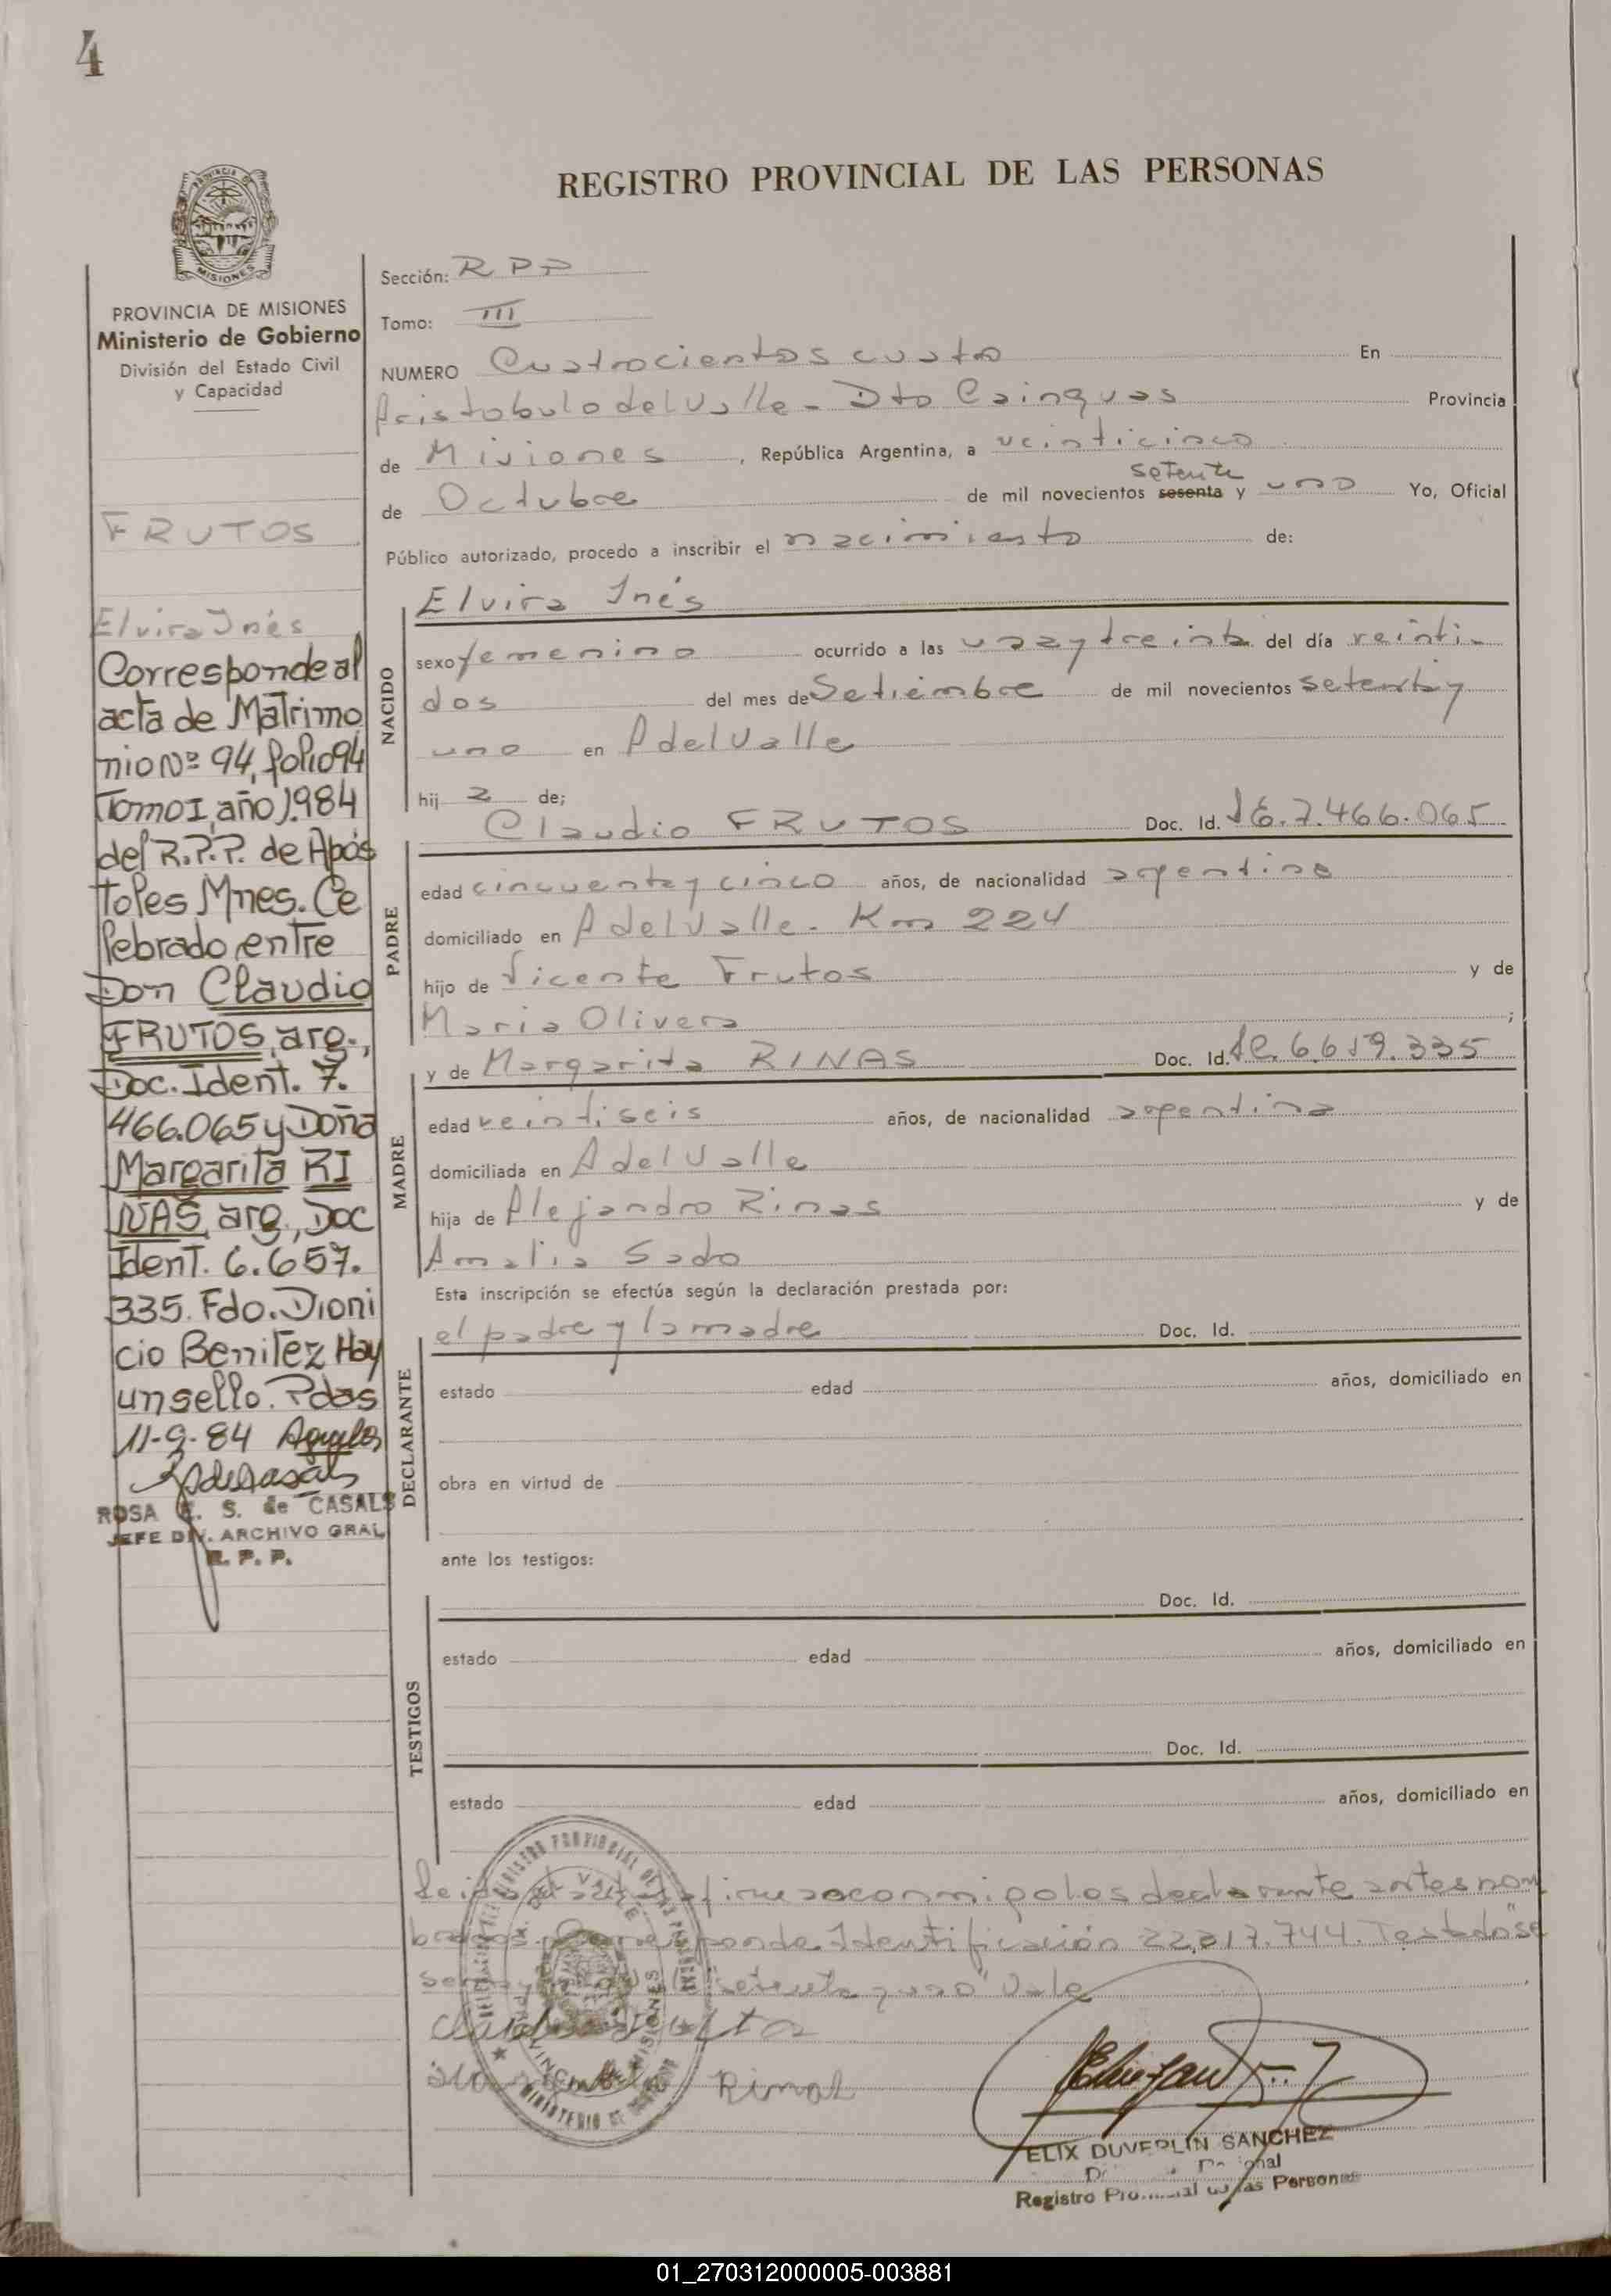 4
REGISTRO PROVINCIAL DE LAS PERSONAS
PROVINCIA DE MISIONES
Ministerio de Gobierno
División del Estado Civil
y Capacidad
FRUTOS
Elvira Inés
Corresponde al
acta de Matrimo
nio Nº 94, folio 94
Tomo I, año 1.984
del R.P.P. de Após
toles Mnes. Ce
lebrado entre
Don Claudio
FRUTOS, arg.,
Doc. Ident. 7.
466.065 y Doña
Margarita RI
NAS, arg., Doc
Ident. 6.657.
335. Fdo. Dioni
cio Benitez Hay
un sello. Pdas
11-9-84
ROSA E. S. de CASALS
JEFE DIV. ARCHIVO GRAL
R. P. P.
Sección: R P P
Tomo: III
NUMERO Cuatrocientos cuatro En
Aristobulo del Valle - Dto Cainguas Provincia
de Misiones, República Argentina, a veinticinco
setenta
de Octubre de mil novecientos sesenta y uno Yo, Oficial
Público autorizado, procedo a inscribir el nacimiento de:
NACIDO
Elvira Inés
sexo femenino ocurrido a las una y treinta del día veinti-
dos del mes de Setiembre de mil novecientos setenta y
uno en A del Valle
hij a de;
PADRE
Claudio FRUTOS Doc. Id. 7.466.065
edad cincuenta y cinco años, de nacionalidad argentina
domiciliado en A del Valle. Km 224
hijo de Vicente Frutos y de
Maria Olivera ;
MADRE
y de Margarita RINAS Doc. Id.
edad veintiseis años, de nacionalidad argentina
domiciliada en A del Valle
hija de Alejandro Rinas y de
Amalia Sado
Esta inscripción se efectúa según la declaración prestada por:
DECLARANTE
el padre y la madre Doc. Id.
estado edad años, domiciliado en
obra en virtud de
ante los testigos:
TESTIGOS
Doc. Id.
estado edad años, domiciliado en
Doc. Id.
estado edad años, domiciliado en
Leido el acta la firman conmigo los declarante antes nom
brados. Corresponde Identificación 22.817.744. Testado "se
setenta y uno" Vale
Rinas
ELIX DUVERLIN SANCHEZ
Registro Provincial de las Personas
01_270312000005-003881